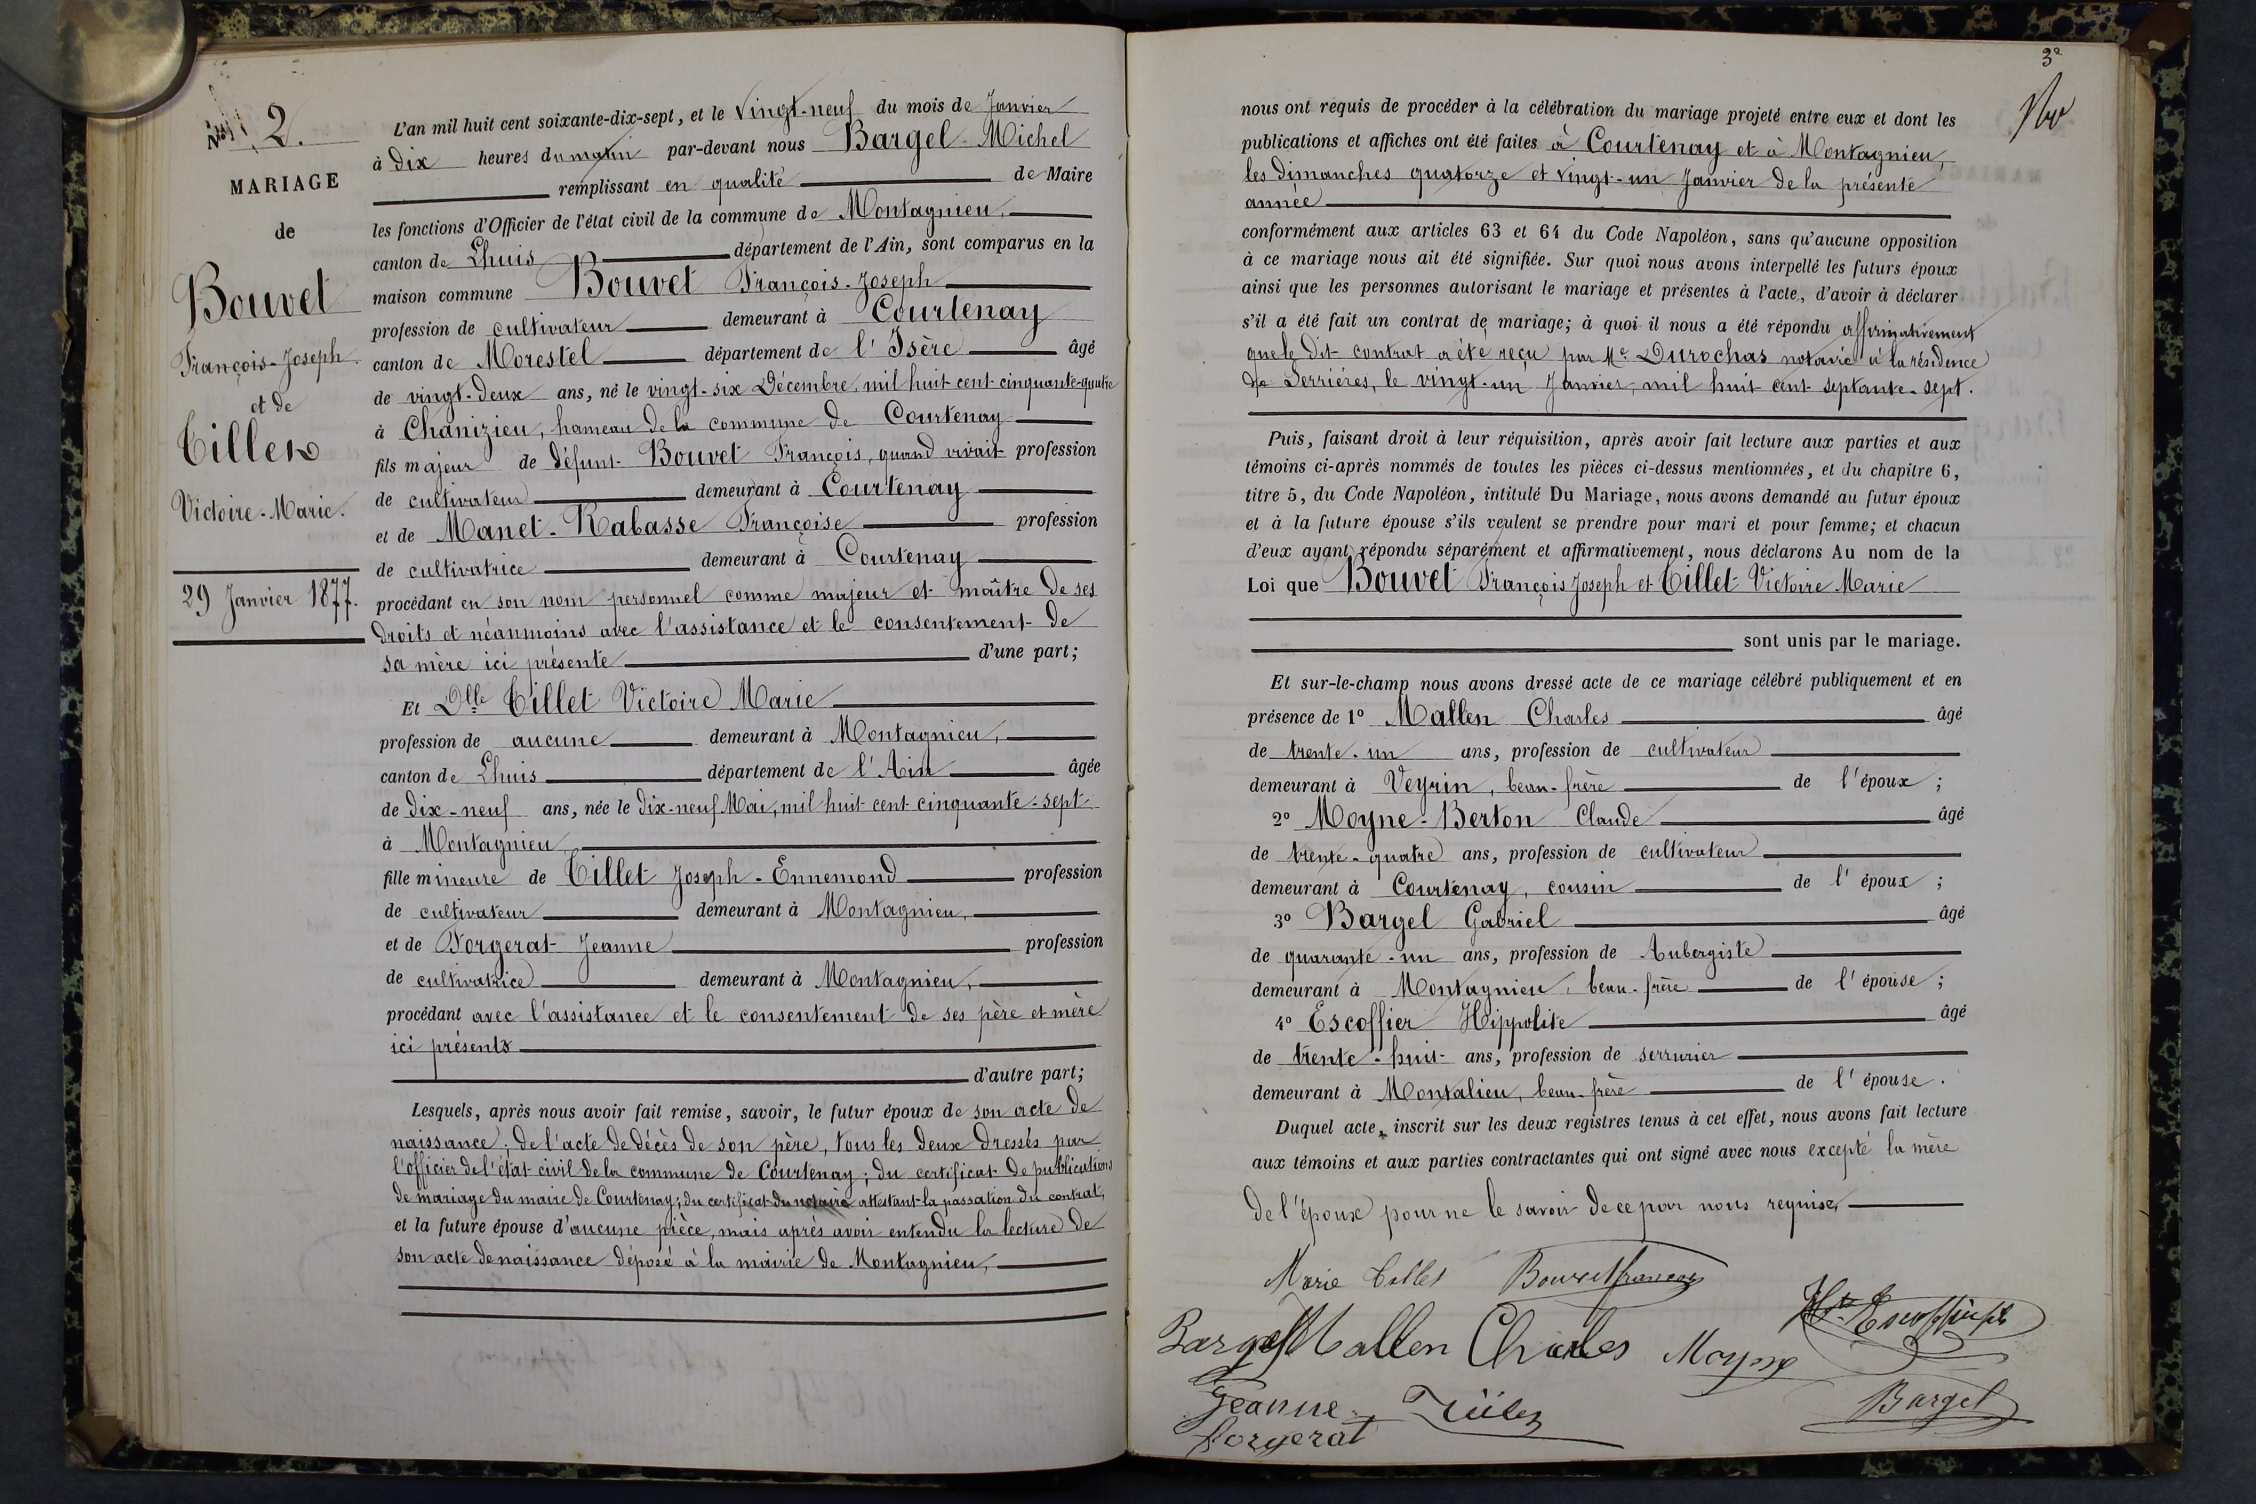 N° 2.
MARIAGE
de
Bouvet
François-Joseph
et de
Tillet
Victoire-Marie.
29 Janvier 1877.
L'an mil huit cent soixante-dix-sept, et le vingt-neuf du mois de Janvier
à dix heures du matin par-devant nous Bargel Michel
remplissant en qualité de Maire
les fonctions d'Officier de l'état civil de la commune de Montagnieu,
canton de Lhuis département de l'Ain, sont comparus en la
maison commune Bouvet François-Joseph
profession de cultivateur demeurant à Courtenay
canton de Morestel département de l'Isère âgé
de vingt-deux ans, né le vingt-six Décembre, mil huit cent cinquante-quatre
à Chanizieu, hameau de la commune de Courtenay
fils majeur de défunt Bouvet François, quand vivait profession
de cultivateur demeurant à Courtenay
et de Manet-Rabasse Françoise profession
de cultivatrice demeurant à Courtenay
procédant en son nom personnel comme majeur et maître de ses
droits et néanmoins avec l'assistance et le consentement de
sa mère ici présente d'une part;
Et Dlle Tillet Victoire Marie
profession de aucune demeurant à Montagnieu,
canton de Lhuis département de l'Ain âgée
de dix-neuf ans, née le dix-neuf Mai, mil huit cent cinquante-sept
à Montagnieu
fille mineure de Tillet Joseph-Ennemond profession
de cultivateur demeurant à Montagnieu,
et de Forgerat Jeanne profession
de cultivatrice demeurant à Montagnieu,
procédant avec l'assistance et le consentement de ses père et mère
ici présents
d'autre part;
Lesquels, après nous avoir fait remise, savoir, le futur époux de son acte de
naissance; de l'acte de décès de son père, tous les deux dressés par
l'officier de l'état civil de la commune de Courtenay; du certificat de publications
de mariage du maire de Courtenay; du certificat du notaire attestant la passation du contrat;
et la future épouse d'aucune pièce, mais après avoir entendu la lecture de
son acte de naissance déposé à la mairie de Montagnieu,
3
nous ont requis de procéder à la célébration du mariage projeté entre eux et dont les
publications et affiches ont été faites à Courtenay et à Montagnieu,
les dimanches quatorze et vingt-un Janvier de la présente
année
conformément aux articles 63 et 64 du Code Napoléon, sans qu'aucune opposition
à ce mariage nous ait été signifiée. Sur quoi nous avons interpellé les futurs époux
ainsi que les personnes autorisant le mariage et présentes à l'acte, d'avoir à déclarer
s'il a été fait un contrat de mariage; à quoi il nous a été répondu affirmativement
que le dit contrat a été reçu par Me Durochas notaire à la résidence
de Serrières, le vingt-un Janvier, mil huit cent septante-sept.
Puis, faisant droit à leur réquisition, après avoir fait lecture aux parties et aux
témoins ci-après nommés de toutes les pièces ci-dessus mentionnées, et du chapitre 6,
titre 5, du Code Napoléon, intitulé Du Mariage, nous avons demandé au futur époux
et à la future épouse s'ils veulent se prendre pour mari et pour femme; et chacun
d'eux ayant répondu séparément et affirmativement, nous déclarons Au nom de la
Loi que Bouvet François Joseph et Tillet Victoire Marie
sont unis par le mariage.
Et sur-le-champ nous avons dressé acte de ce mariage célébré publiquement et en
présence de 1° Mallen Charles âgé
de trente-un ans, profession de cultivateur
demeurant à Veyrin, beau-frère de l'époux;
2° Moyne-Berton Claude âgé
de trente-quatre ans, profession de cultivateur
demeurant à Courtenay, cousin de l'époux;
3° Bargel Gabriel âgé
de quarante-un ans, profession de Aubergiste
demeurant à Montagnieu, beau-frère de l'épouse;
4° Escoffier Hippolite âgé
de trente-huit ans, profession de serrurier
demeurant à Montalieu, beau-frère de l'épouse.
Duquel acte, inscrit sur les deux registres tenus à cet effet, nous avons fait lecture
aux témoins et aux parties contractantes qui ont signé avec nous excepté la mère
de l'époux pour ne le savoir de ce par nous requise,
Marie Tillet Bouvet françois
Hte Escoffier
Bargel Mallen Charles Moyne
Jeanne Tillet Bargel
Forgerat